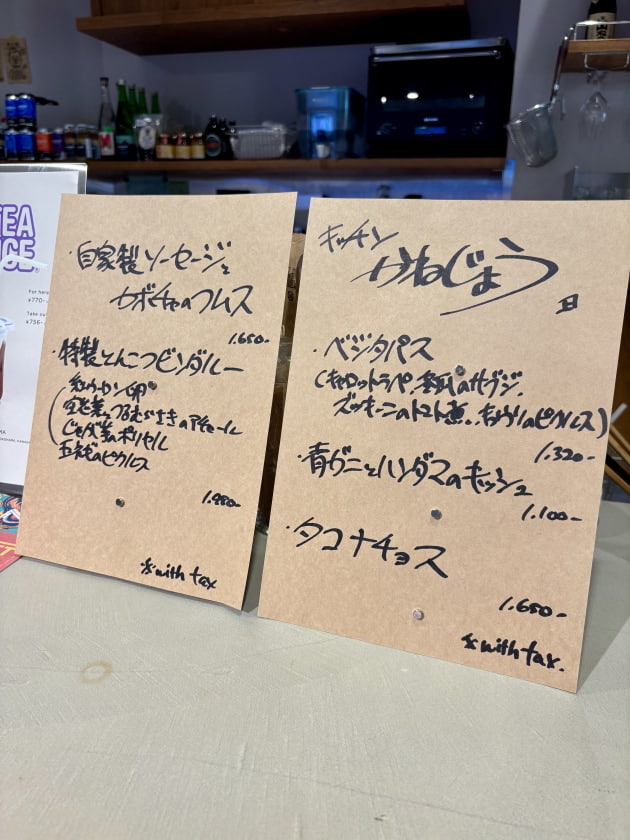 ・自家製ソーセージと
カボチャのフムス
1.650-
・特製とんこつビンダルー
のアチャール
じゃが芋のポリヤル
玉ねぎのピクルス
1.980-
※with tax
キッチン
かねじょう
・ベジタパス
(キャロットラペ、冬瓜のサブジ、
ズッキーニのトマト煮、キュウリのピクルス)
1.320-
・青ガニとハンダマのキッシュ
1.100-
・タコナチョス
1.650-
※with tax.
For here
¥770-
¥756-